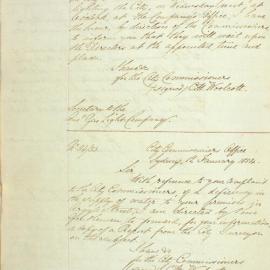 lighting the City, on Wednesday next, at
o'clock, at the Company's Office, I have
the honor, by direction of the Commissioners
to inform you that they will wait upon
the Directors at the appointed time and
place.
I have &c
for the City Commissioners
(signed) C. H. Woolcott
Secretary to the
Gas Light Company.
City Commissioners Office
Sydney, January 1854.
Sir,
With reference to your complaint
to the City Commissioners, of a deficiency in
the supply of water to your premises in
Street, I am directed by
them to for your information
a copy of a Report from the City Surveyor
on the subject.
I have &c
for the City Commissioners